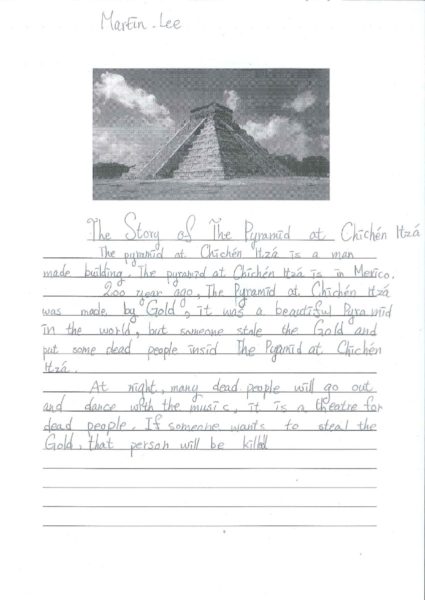 Martin. Lee
The Story of The Pyramid at Chichén Itzá
The pyramid at Chichén Itzá is a man
made building. The pyramid at Chichén Itzá is in Merico.
200 year ago, The Pyramid at Chichén Itzá
was made by Gold, it was a beautiful Pyramid
in the world, but someone stole the Gold and
put some dead people insid The Pyramid at Chichén
Itzá.
At night, many dead people will go out
and dance with the music, it is a theatre for
dead people. If someone wants to steal the
Gold, that person will be killed